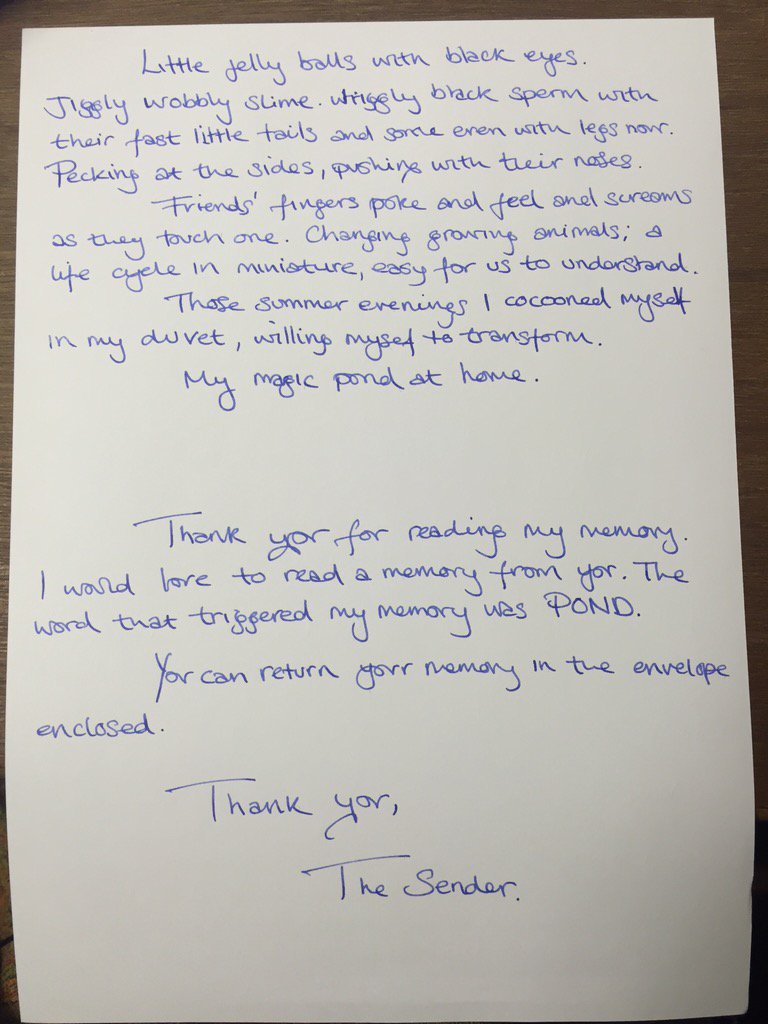 Little jelly balls with black eyes.
Jiggly wobbly slime. Wriggly black sperm with
their fast little tails and some even with legs now.
Pecking at the sides, pushing with their noses.
Friends' fingers poke and feel and screams
as they touch one. Changing growing animals; a
life cycle in miniature, easy for us to understand.
Those summer evenings I cocooned myself
in my duvet, willing myself to transform.
My magic pond at home.
Thank you for reading my memory.
I would love to read a memory from you. The
word that triggered my memory was POND.
You can return your memory in the envelope
enclosed.
Thank you,
The Sender.